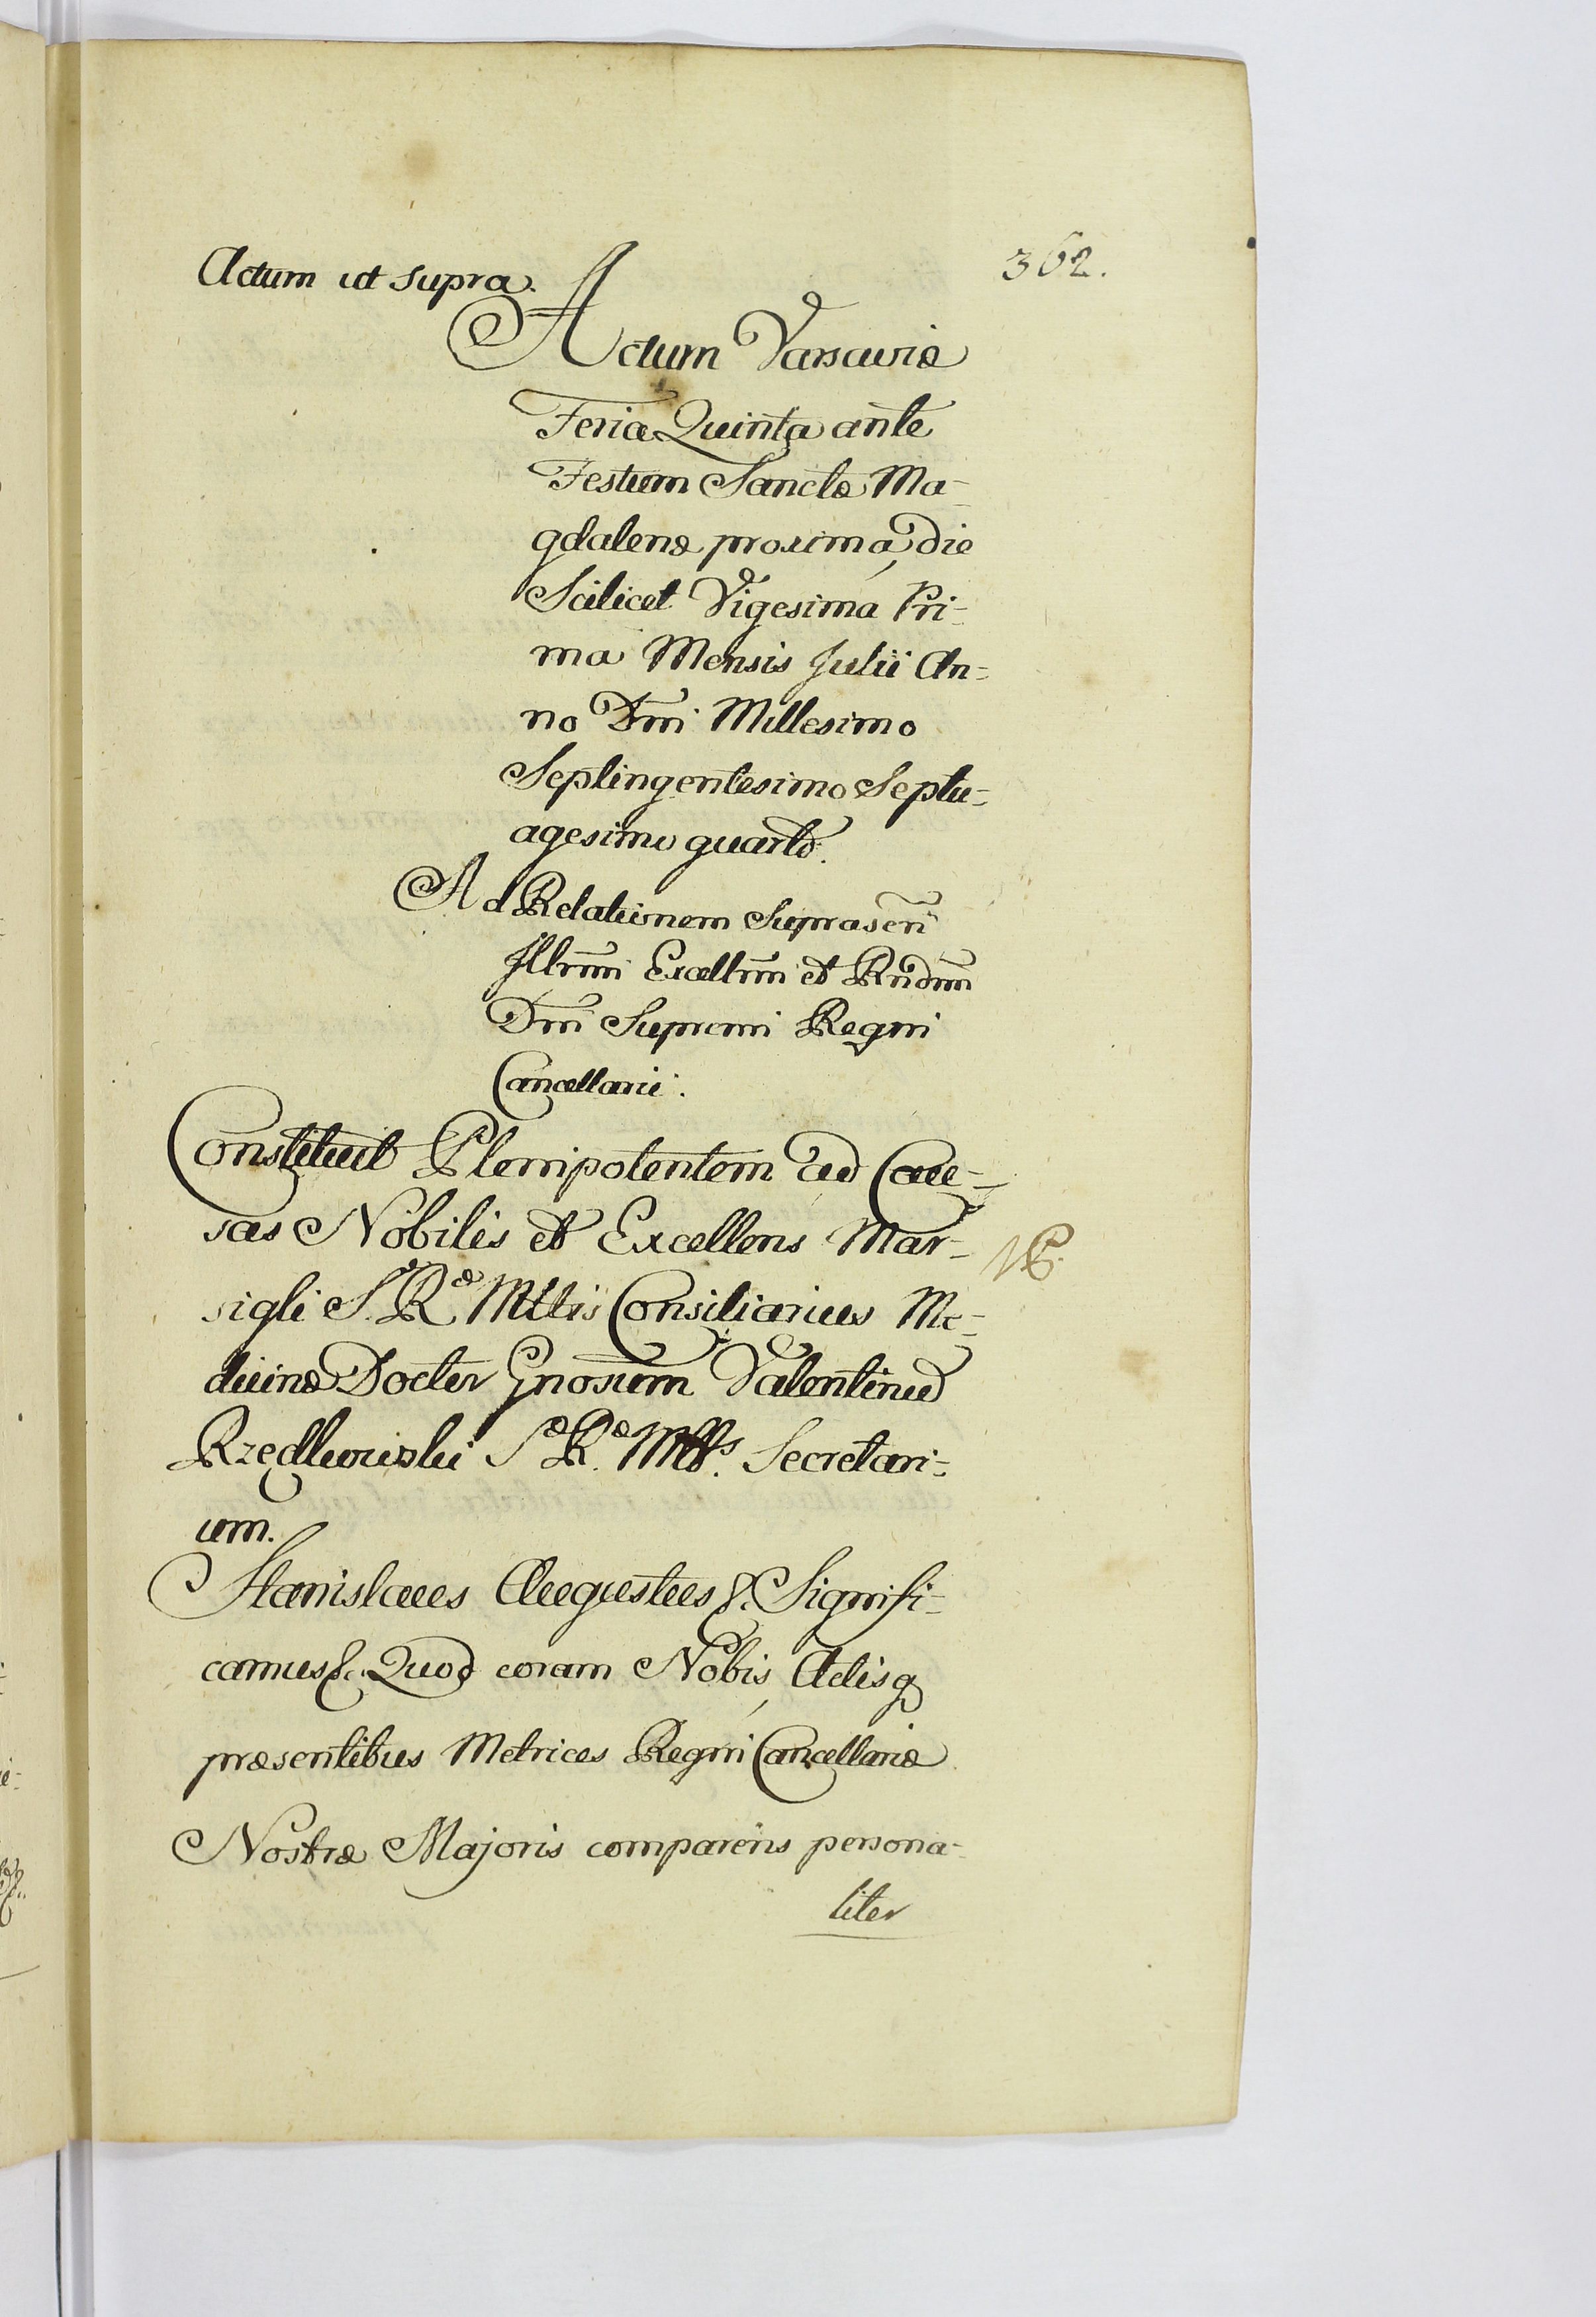 362.
Actum ut supra.
Actum Varsaviæ
Feria Quinta ante
Festum Sanctæ Ma-
gdalenæ proximâ, die
Scilicet Vigesima Pri-
ma Mensis Julii An-
no Dni Millesimo
Septingentesimo Septu-
agesimo quarto.
Ad Relationem Suprascri
Illrmi Excellmi et Rndmi
Dni Supremi Regni
Cancellarii.
Constituit Plenipotentem ad Cau-
sas Nobilis et Excellens Mar-
sigli S. Ræ Mttis Consiliarius Me-
dicinæ Doctor Gnosum Valentinum
Rzędkwiski Sæ Ræ Mttis. Secretari-
um.
Stanislaus Augustus &. Signifi-
camus &. Quod coram Nobis, Actisq
præsentibus Metrices Regni Cancellariæ
Nostræ Majoris comparens persona-
liter